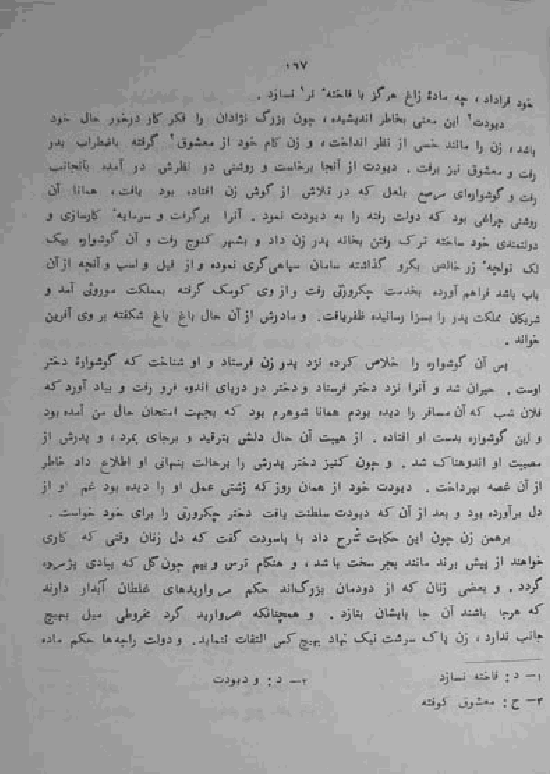 ۱۶۷
خود قراداد، چه مادهٔ زاغ هرگز با فاختهٔ نر۱ نسازد .
دیودت۲ این معنی بخاطر اندیشیده، چون بزرگ نژادان را فکر کار درخور حال خود
باشد، زن را مانند خسی از نظر انداخت، و زن کام خود از معشوق۳ گرفته باضطراب پدر
رفت و معشوق نیز برفت . دیودت از آنجا برخاست و روشنی در نظرش در آمده بآنجانب
رفت و گوشواره‌ای مرصع بلعل که در تلاش از گوش زن افتاده بود یافت، همانا آن
روشنی چراغی بود که دولت رفته را به دیودت نمود . آنرا برگرفت و سرمایهٔ کارسازی و
دولتمندی خود ساخته ترک رفتن بخانه پدر زن داد و بشهر کنوج رفت و آن گوشواره بیک
لک تولچه زر خالص بگرو گذاشته سامان سپاهی گری نموده و از فیل و اسب و آنچه از آن
باب باشد فراهم آورده بخدمت چکرورتی رفت و از وی کومک گرفته بمملکت موروثی آمد و
شریکان مملکت پدر را بسزا رسانیده ظفریافت. و مادرش از آن حال باغ باغ شکفته بر وی آفرین
خواند .
پس آن گوشواره را خلاص کرده نزد پدر زن فرستاد و او شناخت که گوشوارهٔ دختر
اوست . حیران شد و آنرا نزد دختر فرستاد و دختر در دریای اندوه فرو رفت و بیاد آورد که
فلان شب که آن مسافر را دیده بودم همانا شوهرم بود که بجهت امتحان حال من آمده بود
و این گوشواره بدست او افتاده . از هیبت آن حال دلش بترقید و برجای بمرد، و پدرش از
مصیبت او اندوهناک شد . و چون کنیز دختر پدرش را برحالت پنهانی او اطلاع داد خاطر
از آن غصه بپرداخت . دیودت خود از همان روز که زشتی عمل او را دیده بود غم او از
دل برآورده بود و بعد از آن که دیودت سلطنت یافت دختر چکرورتی را برای خود خواست .
برهمن زن چون این حکایت شرح داد با باسودت گفت که دل زنان وقتی که کاری
خواهند از پیش برند مانند بجر سخت باشد، و هنگام ترس و بیم چون گل که ببادی پژمرده
گردد . و بعضی زنان که از دودمان بزرگ‌اند حکم مرواریدهای غلطان آبدار دارند
که هرجا باشند آن جا بایشان بنازد . و همچنانکه مروارید گرد مخروطی میل بهیچ
جانب ندارد، زن پاک سرشت نیک نهاد بهیچ کس التفات ننماید. و دولت راجه‌ها حکم ماده
۱— د: فاخته نسازد
۲— د: و دیودت
۳— ح: معشوق کوفته